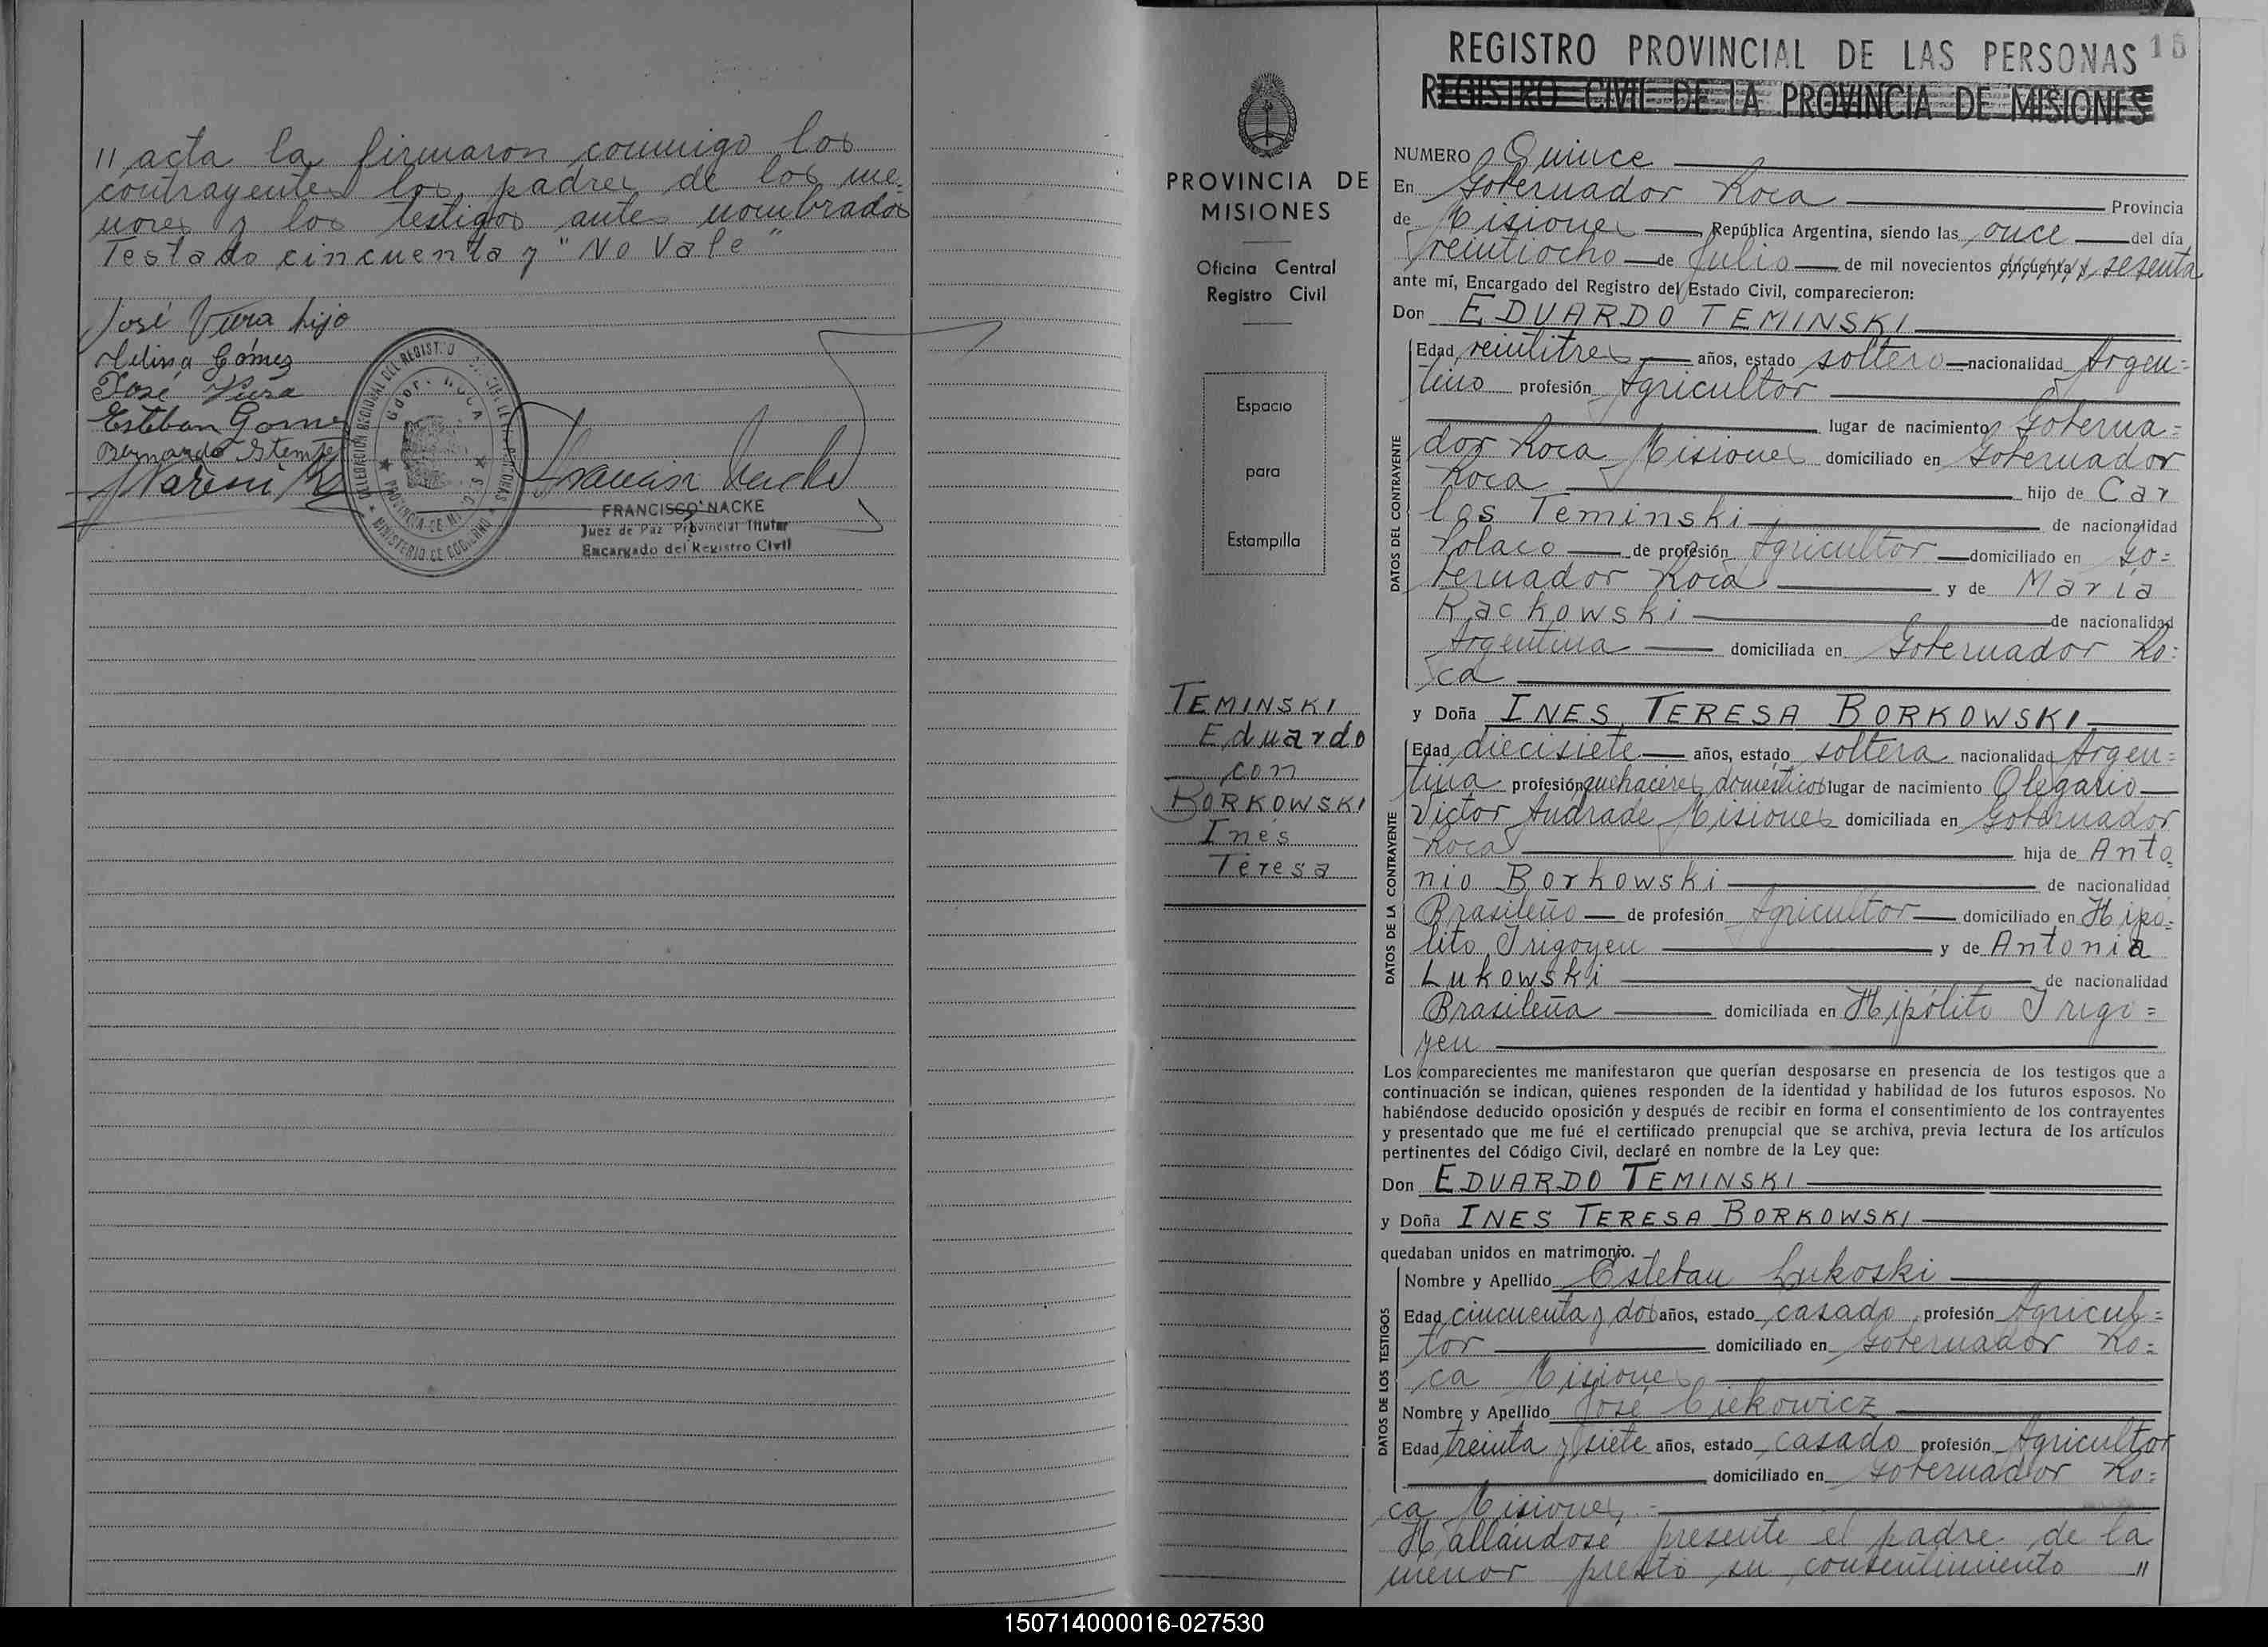 11 acta la firmaron conmigo los
contrayentes los padres de los me-
nores y los testigos ante nombrados
Testado cincuenta y "No Vale"
José Viera hijo
Melina Gómez
José Viera
Esteban Gome
Bernardo Stempe
FRANCISCO NACKE
Juez de Paz Provincial Titular
Encargado del Registro Civil
PROVINCIA DE
MISIONES
Oficina Central
Registro Civil
Espacio
para
Estampilla
TEMINSKI
Eduardo
con
BORKOWSKI
Inés
Teresa
REGISTRO PROVINCIAL DE LAS PERSONAS 15
REGISTRO CIVIL DE LA PROVINCIA DE MISIONES
NUMERO Quince
En Gobernador Roca Provincia
de Misiones República Argentina, siendo las once del día
veintiocho de Julio de mil novecientos cincuenta y sesenta
ante mí, Encargado del Registro del Estado Civil, comparecieron:
Don EDUARDO TEMINSKI
DATOS DEL CONTRAYENTE
Edad veintitres años, estado soltero nacionalidad Argen=
tino profesión Agricultor
lugar de nacimiento Goberna=
dor Roca Misiones domiciliado en Gobernador
Roca hijo de Car
los Teminski de nacionalidad
Polaco de profesión Agricultor domiciliado en Go=
bernador Roca y de María
Rackowski de nacionalidad
Argentina domiciliada en Gobernador Ro=
ca
y Doña INES TERESA BORKOWSKI
DATOS DE LA CONTRAYENTE
Edad diecisiete años, estado soltera nacionalidad Argen=
tina profesión quehaceres domésticos lugar de nacimiento Olegario
Víctor Andrade Misiones domiciliada en Gobernador
Roca hija de Anto
nio Borkowski de nacionalidad
Brasileño de profesión Agricultor domiciliado en Hipó=
lito Irigoyen y de Antonia
Lukowski de nacionalidad
Brasileña domiciliada en Hipólito Irigo=
yen
Los comparecientes me manifestaron que querían desposarse en presencia de los testigos que a
continuación se indican, quienes responden de la identidad y habilidad de los futuros esposos. No
habiéndose deducido oposición y después de recibir en forma el consentimiento de los contrayentes
y presentado que me fué el certificado prenupcial que se archiva, previa lectura de los artículos
pertinentes del Código Civil, declaré en nombre de la Ley que:
Don EDUARDO TEMINSKI
y Doña INES TERESA BORKOWSKI
quedaban unidos en matrimonio.
DATOS DE LOS TESTIGOS
Nombre y Apellido Esteban Lukoski
Edad cincuenta y dos años, estado casado profesión Agricul=
tor domiciliado en Gobernador Ro=
ca Misiones
Nombre y Apellido José Ciekowicz
Edad treinta y siete años, estado casado profesión Agricultor
domiciliado en Gobernador Ro=
ca Misiones
Hallándose presente el padre de la
menor prestó su consentimiento 11
150714000016-027530